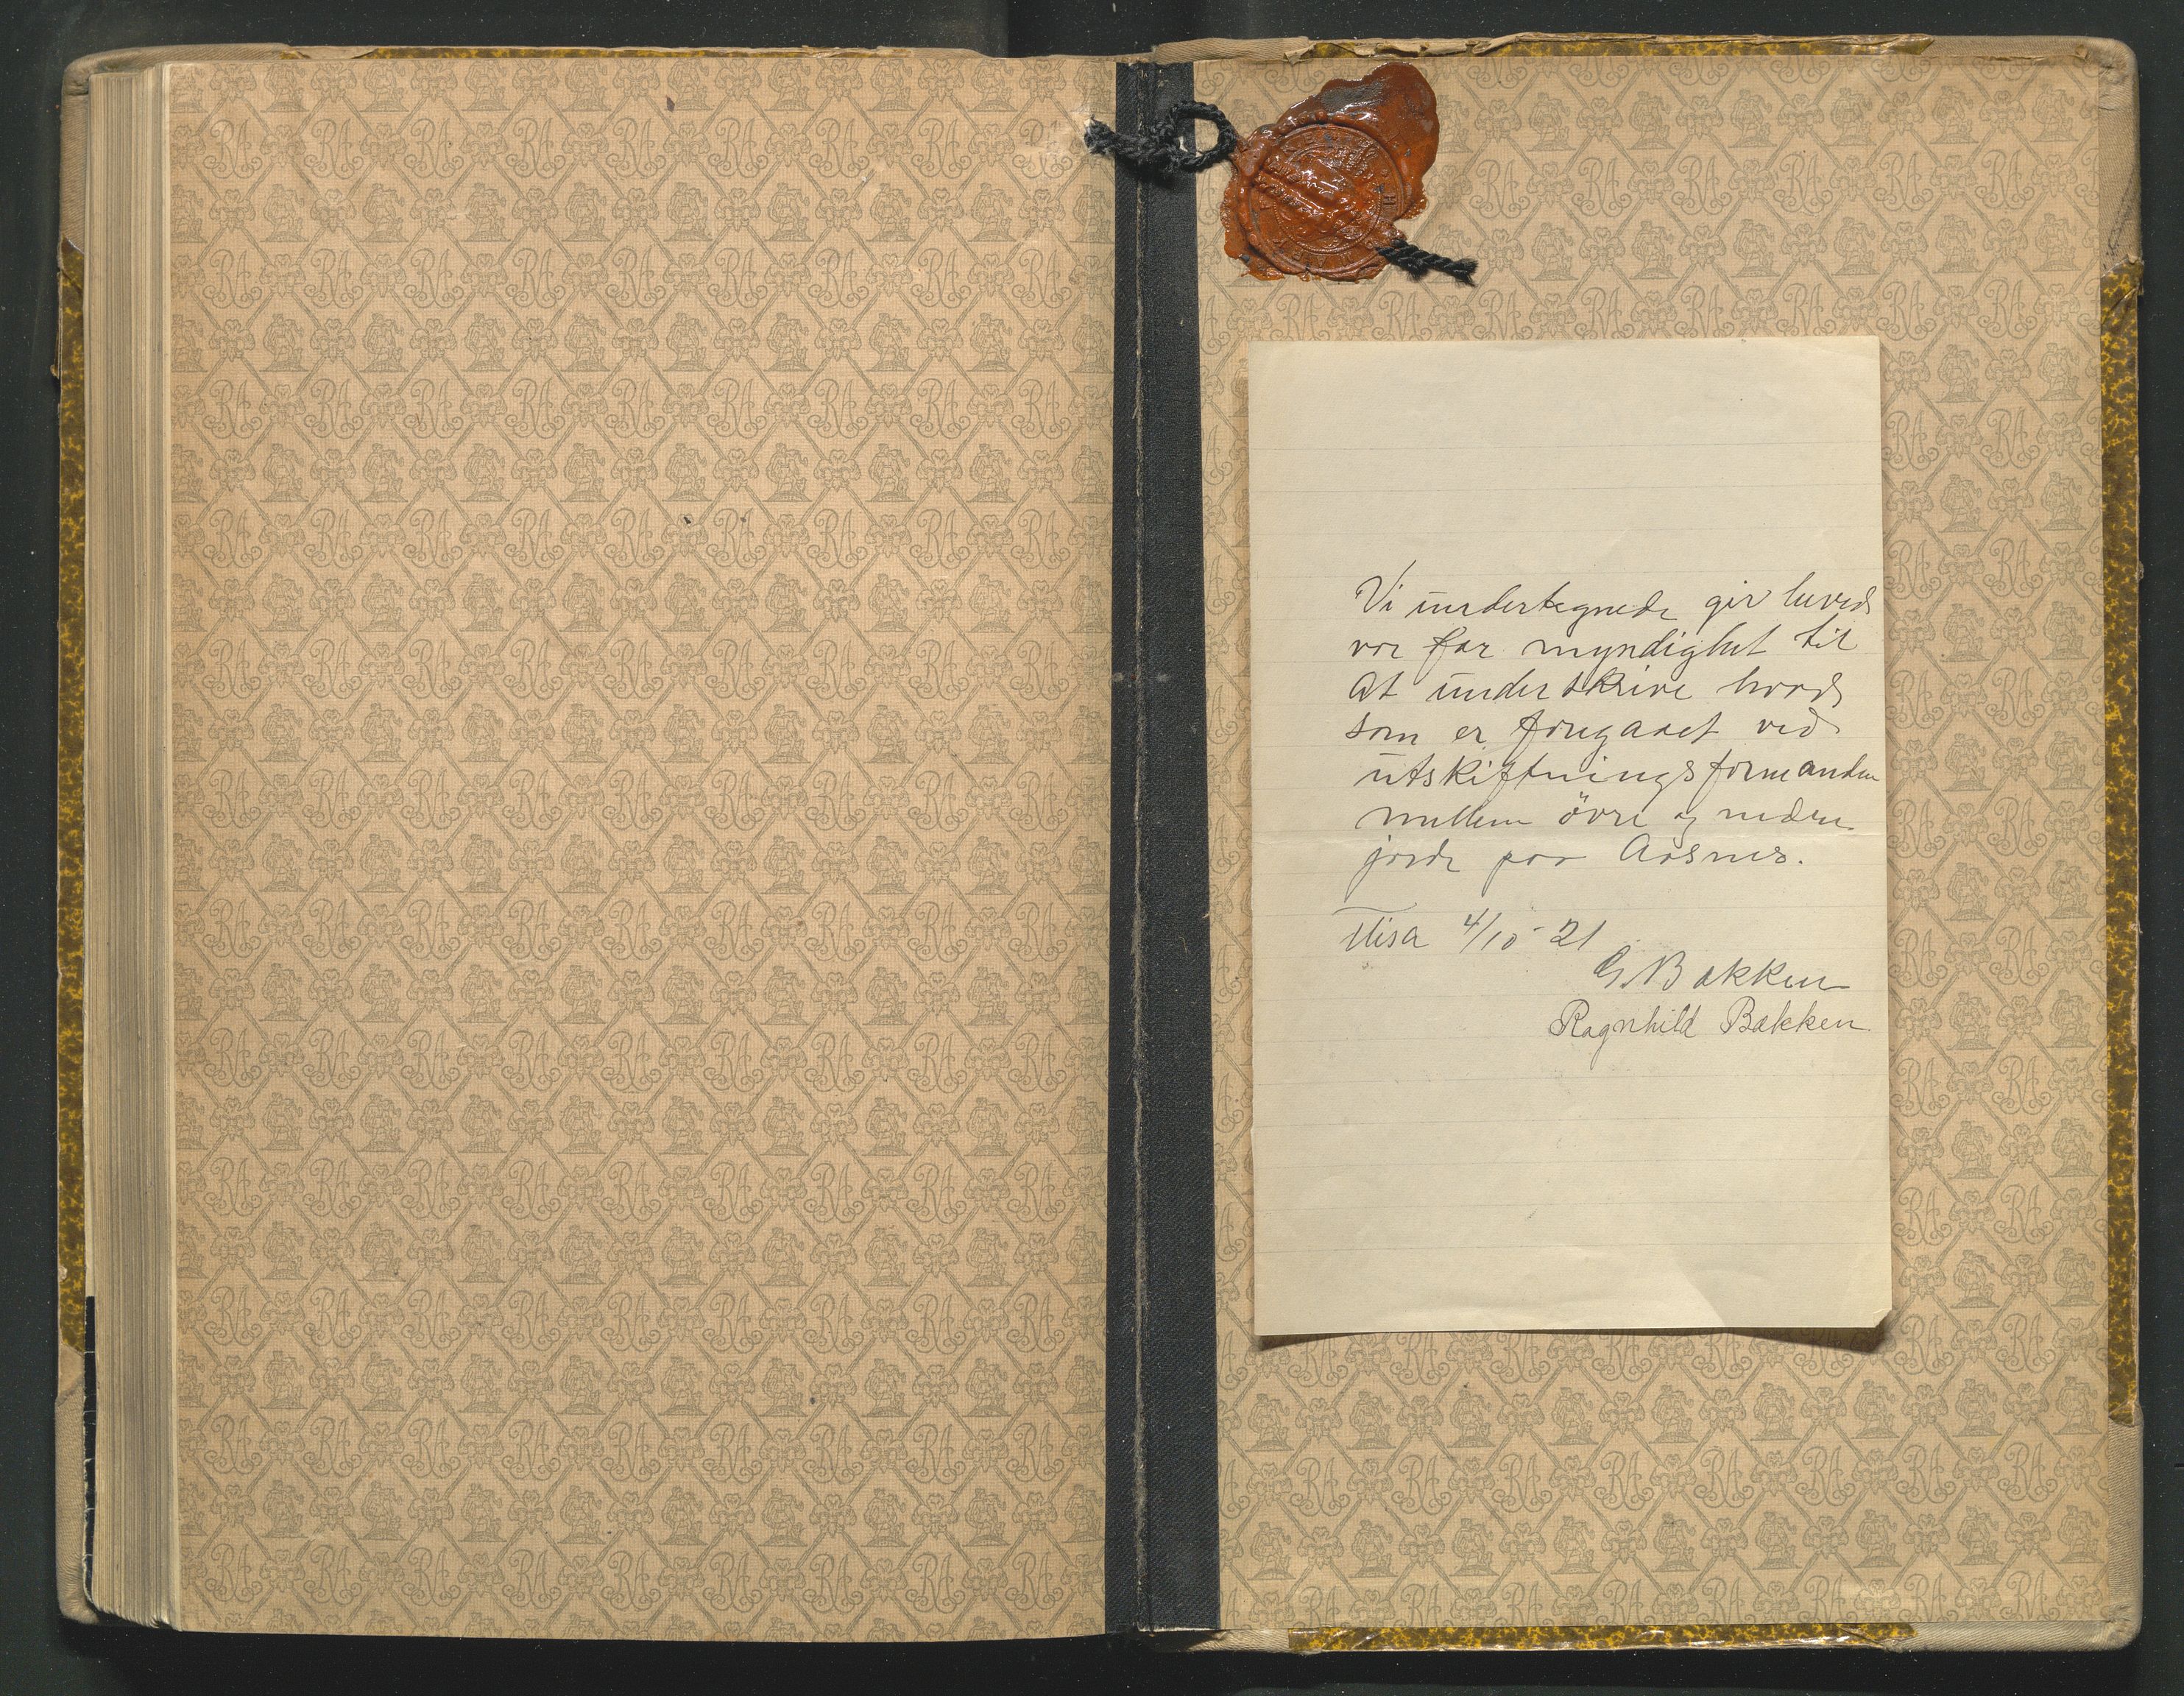 Vi undertegnede gir herved
vor far myndighet til
at underskrive hvad
som er foregaaet ved
utskiftningsformanden
mellem övre og nedre
jorde paa Aasnes.
Flisa 4/10-21
G. Bakken
Ragnhild Bakken